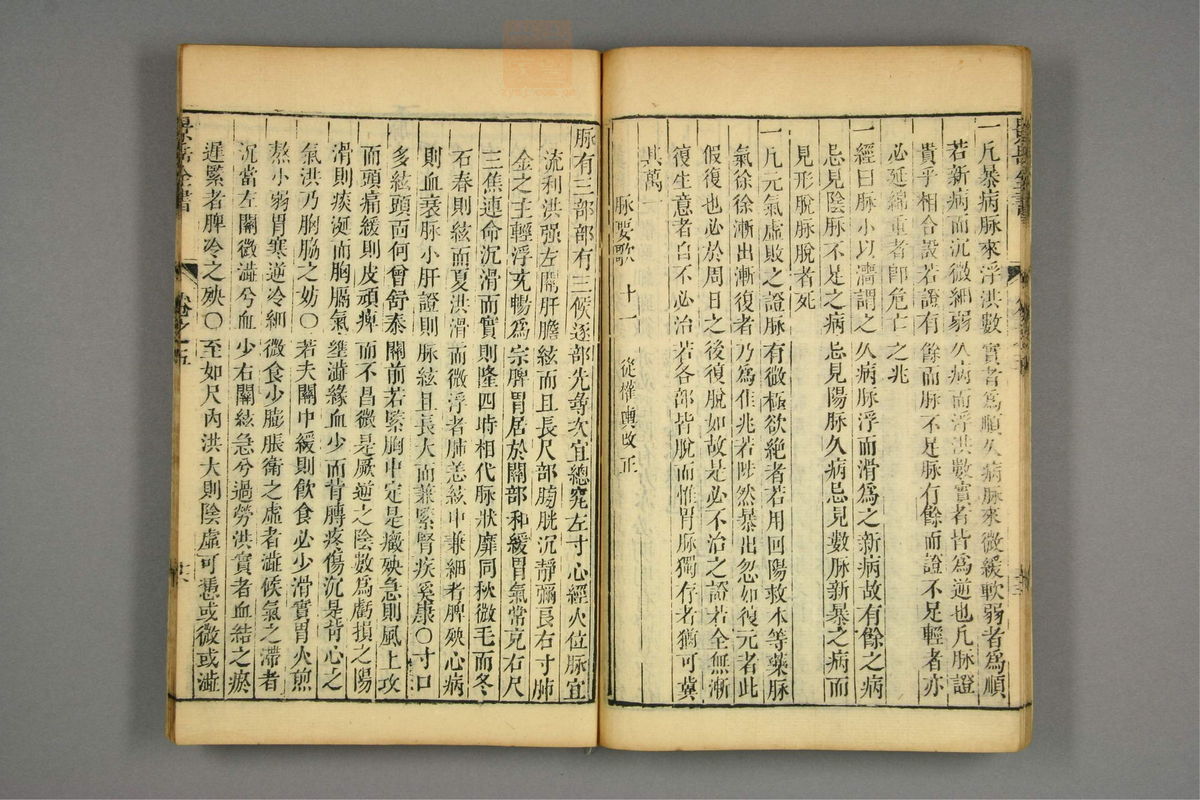 一凡暴病脉來浮洪數實者爲順久病脉來微緩軟弱者爲順
若新病而沉微細弱久病而浮洪數實者皆爲逆也凡脉證
貴乎相合設若證有餘而脉不足脉有餘而證不足輕者亦
必延綿重者卽危亡之兆
一經曰脉小以濇謂之久病脉浮而滑爲之新病故有餘之病
忌見陰脉不足之病忌見陽脉久病忌見數脉新暴之病而
見形脫脉脫者死
一凡元氣虛敗之證脉有微極欲絶者若用回陽救本等藥脉
氣徐徐漸出漸復者乃爲佳兆若陡然暴出忽如復元者此
假復也必於周日之後復脫如故是必不治之證若全無漸
復生意者自不必治若各部皆脫而惟胃脉獨存者猶可冀
其萬一
脉要歌 十一 從權輿改正
脉有三部部有三候逐部先尋次宜總究左寸心經火位脉宜
流利洪强左關肝膽絃而且長尺部膀胱沉靜彌長右寸肺
金之主輕浮充暢爲宗脾胃居於關部和緩胃氣常充右尺
三焦連命沉滑而實則隆四時相代脉狀靡同秋微毛而冬
石春則絃而夏洪滑而微浮者肺恙絃中兼細者脾殃心病
則血衰脉小肝證則脉絃且長大而兼緊腎疾奚康〇寸口
多絃頭面何曾舒泰關前若緊胸中定是癥殃急則風上攻
而頭痛緩則皮頑痺而不昌微是厥逆之陰數爲虧損之陽
滑則痰涎而胸膈氣壅澁緣血少而背膊疼傷沉是背心之
氣洪乃胸脇之妨〇若夫關中緩則飲食必少滑實胃火煎
熬小弱胃寒逆冷細微食少膨脹衛之虛者澁候氣之滯者
沉當左關微澁兮血少右關絃急兮過勞洪實者血結之瘀
遲緊者脾冷之殃〇至如尺內洪大則陰虛可慿或微或澁
景岳全書
卷之五